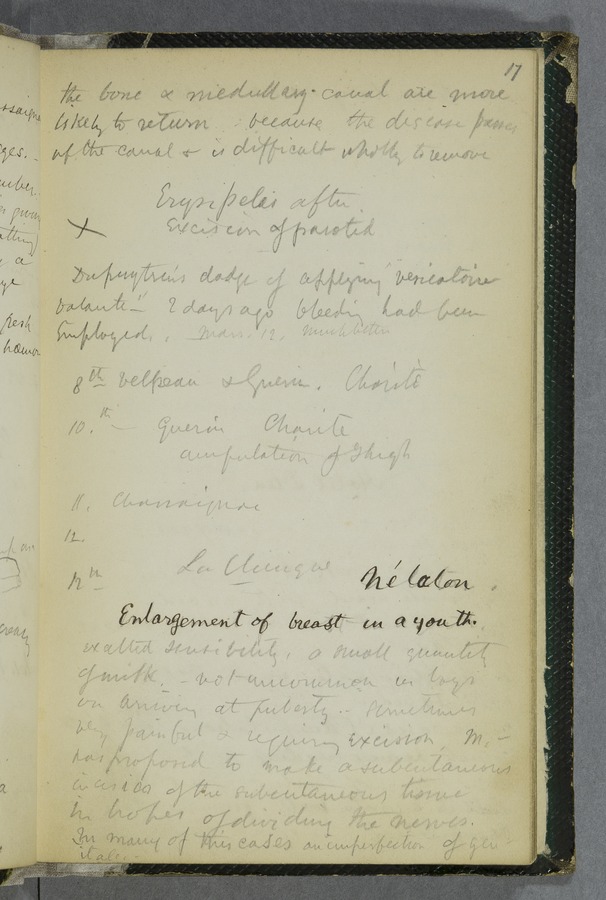 17
the bone & medullary canal are more
likely to return because the disease passes
up the canal & is difficult wholly to remove
Erysipelas after
X Excision of parotid
Dupuytren's dodge of applying "vesicatoire
volante" 2 days ago bleeding had been
Employed. Mars. 12. much better
8th Velpeau & Guerin. Charité
10.th Guerin Charite
amputation of Thigh
11. Chassaignac
12.
12th La Clinique Nélaton.
Enlargement of breast in a youth.
exalted sensibility, a small quantity
of milk. - not uncommon in boys
on arriving at puberty - sometimes
very painful & requiring excision, M. -
has proposed to make a subcutaneous
incision of the subcutaneous tissue
in hopes of dividing the nerves.
In many of this cases an imperfection of gen-
itals.